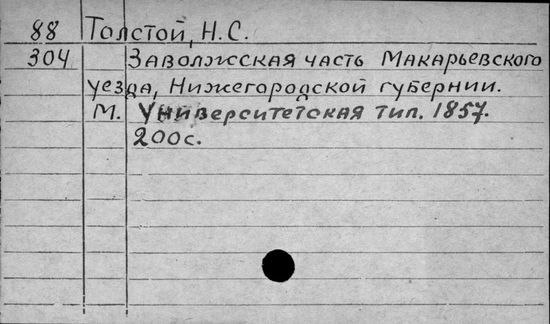 88 Толстой, Н.С.
304 Заволжская часть Макарьевского
уезда, Нижегородской губернии.
М. Университетская тип. 1857.
200с.